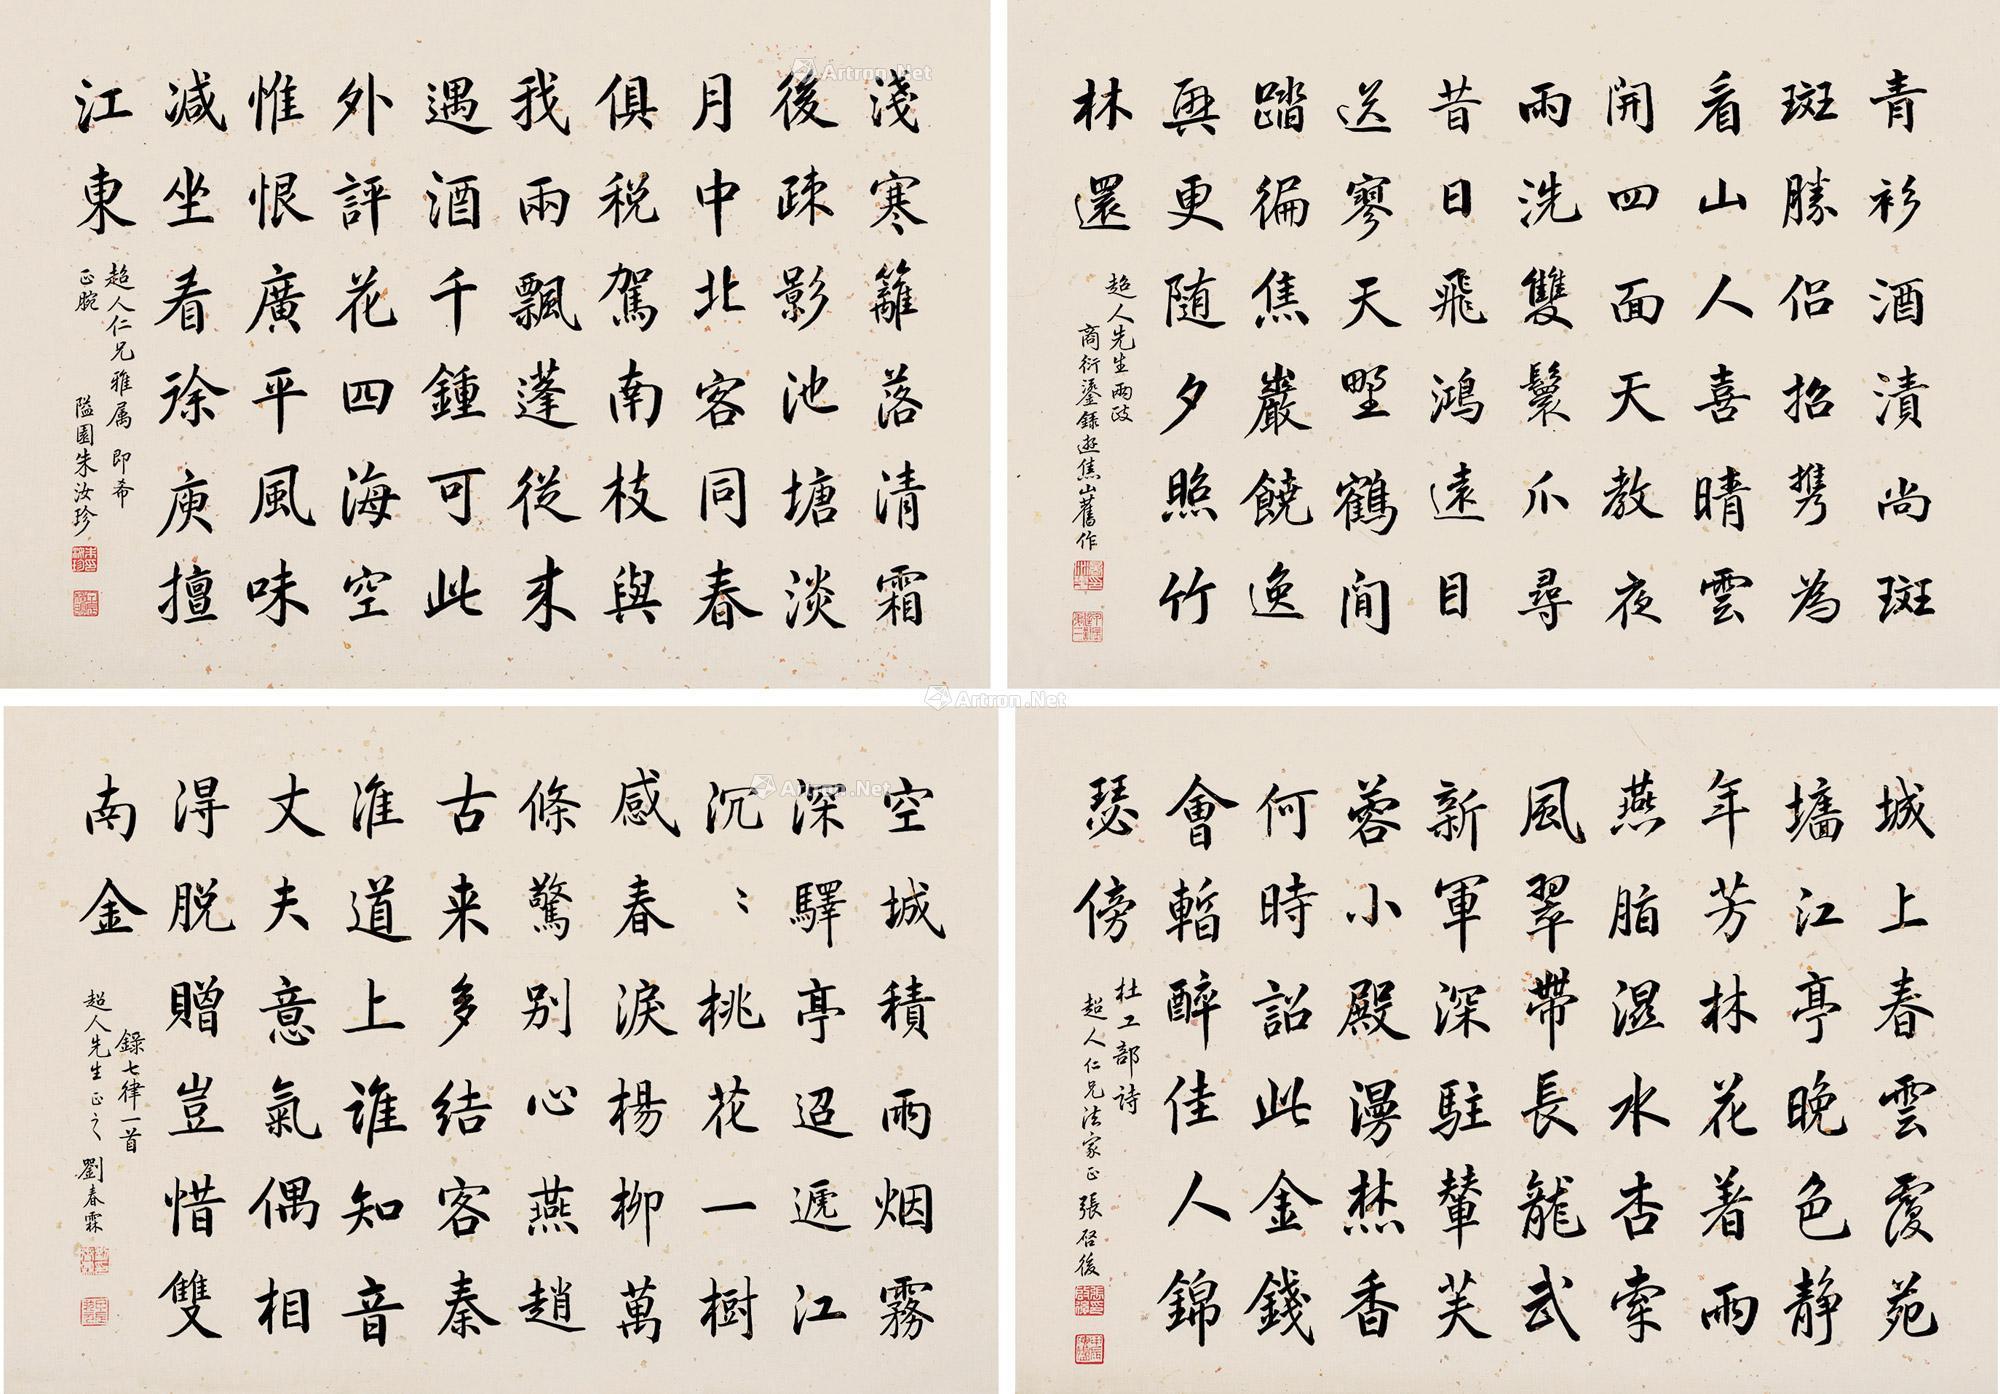 青衫酒漬尚斑
斑勝侶招携為
看山人喜晴雲
開四面天教夜
雨洗雙鬟爪尋
昔日飛鴻遠目
送寥天野鶴閒
踏徧焦巖饒逸
興更隨夕照竹
林還
超人先生兩政
商衍鎏錄遊焦山舊作
淺寒籬落清霜
後疎影池塘淡
月中北客同春
俱税駕南枝與
我兩飄蓬從来
遇酒千鍾可此
外評花四海空
惟恨廣平風味
减坐看徐庾擅
江東
超人仁兄雅属 即希
正腕
隘園朱汝珍
城上春雲覆苑
墻江亭晚色静
年芳林花着雨
燕脂濕水杏牽
風翠帶長龍武
新軍深駐輦芙
蓉小殿漫焚香
何時詔此金錢
會暫醉佳人錦
瑟傍
杜工部詩
超人仁兄法家正 張啓後
空城積雨烟霧
深驛亭迢遞江
沉〻桃花一樹
感春淚楊柳萬
條驚別心燕趙
古来多結客秦
淮道上誰知音
丈夫意氣偶相
得脱贈豈惜雙
南金
錄七律一首
超人先生正之 劉春霖
Artron.Net
Artron.Net
Artron.Net